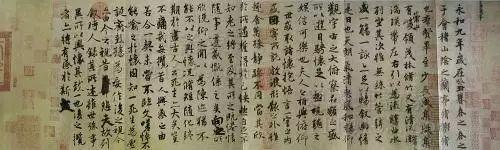 永和九年歲在癸丑暮春之初會
于會稽山陰之蘭亭脩禊事
也羣賢畢至少長咸集此地
有崇山峻領茂林脩竹又有清流激
湍映帶左右引以為流觴曲水
列坐其次雖無絲竹管弦之
盛一觴一詠亦足以暢敘幽情
是日也天朗氣清惠風和暢仰
觀宇宙之大俯察品類之盛
所以遊目騁懷足以極視聽之
娛信可樂也夫人之相與俯仰
一世或取諸懷抱悟言一室之內
或因寄所託放浪形骸之外雖
趣舍萬殊靜躁不同當其欣
於所遇蹔得於己怏然自足不
知老之將至及其所之既惓情
隨事遷感慨係之矣向之所
欣俛仰之閒以為陳迹猶不
能不以之興懷況脩短隨化終
期於盡古人云死生亦大矣豈
不痛哉每攬昔人興感之由
若合一契未嘗不臨文嗟悼不
能喻之於懷固知一死生為虛
誕齊彭殤為妄作後之視今
亦由今之視昔悲夫故列
敘時人錄其所述雖世殊事
異所以興懷其致一也後之攬
者亦將有感於斯文